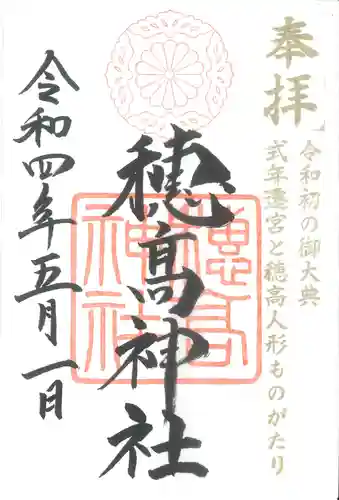 奉拝
令和初の御大典
式年遷宮と穂高人形ものがたり
穂高神社
穂高神社
令和四年五月一日